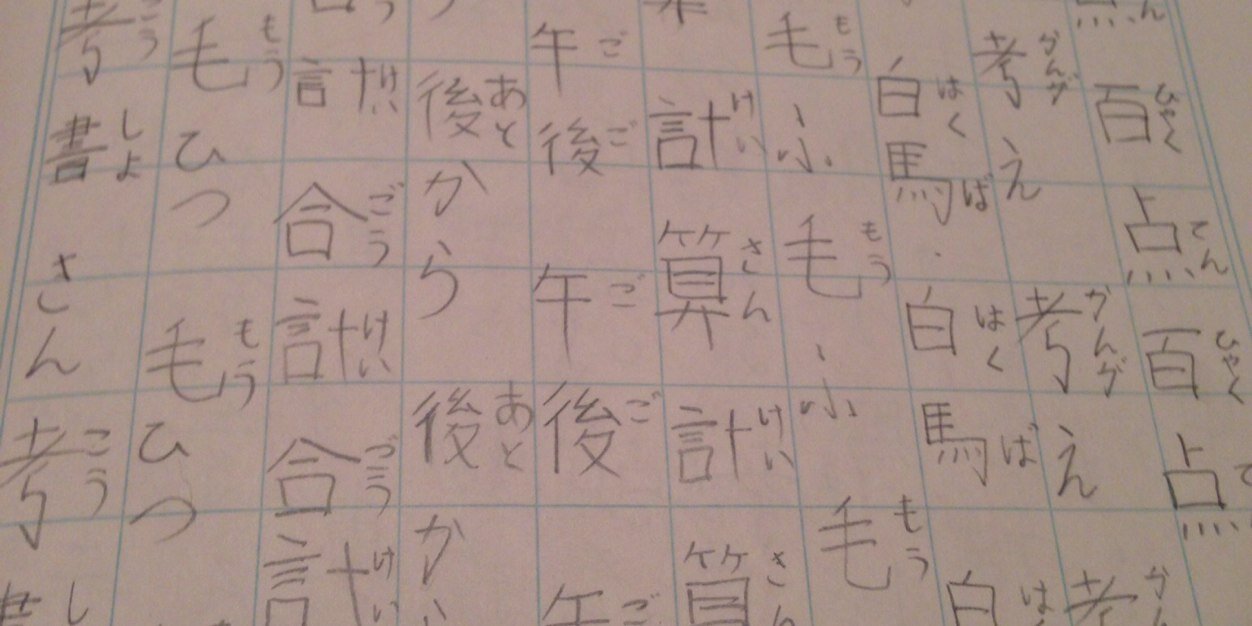 点てん百ひゃく点てん百ひゃく点て
考かんがえ考かんがえ考かん
白はく馬ば白はく馬ば白はく
毛もうふ毛もうふ毛もう
計けい算さん計けい算さん
午ご後ご午ご後ご午ご
後あとから後あとか
計けい合ごう計けい合ごう計けい
毛もうひつ毛もうひつ
考こう書しょさん考こう書し